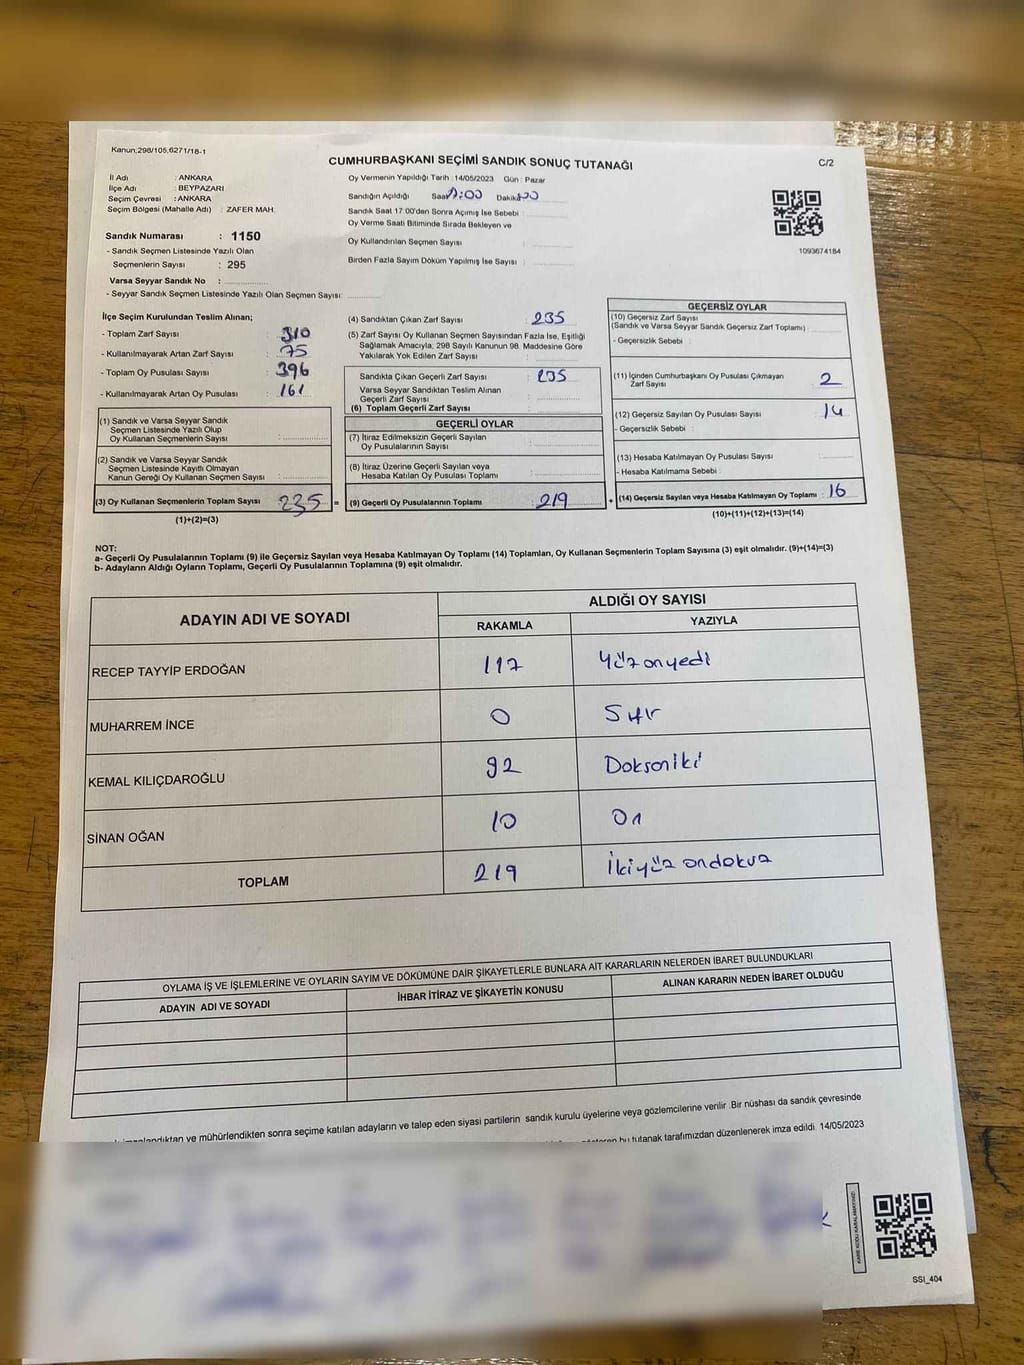 Kanun:298/105,6271/18-1
CUMHURBAŞKANI SEÇİMİ SANDIK SONUÇ TUTANAĞI
C/2
İl Adı : ANKARA
İlçe Adı : BEYPAZARI
Seçim Çevresi : ANKARA
Seçim Bölgesi (Mahalle Adı) : ZAFER MAH.
Sandık Numarası : 1150
- Sandık Seçmen Listesinde Yazılı Olan
Seçmenlerin Sayısı : 295
Varsa Seyyar Sandık No :
- Seyyar Sandık Seçmen Listesinde Yazılı Olan Seçmen Sayısı:
Oy Vermenin Yapıldığı Tarih : 14/05/2023 Gün : Pazar
Sandığın Açıldığı Saat :00 Dakika 00
Sandık Saat 17:00'den Sonra Açımış İse Sebebi :
Oy Verme Saati Bitiminde Sırada Bekleyen ve
Oy Kullandırılan Seçmen Sayısı :
Birden Fazla Sayım Döküm Yapılmış İse Sayısı :
1093674184
İlçe Seçim Kurulundan Teslim Alınan;
- Toplam Zarf Sayısı : 310
- Kullanılmayarak Artan Zarf Sayısı : 75
- Toplam Oy Pusulası Sayısı : 396
- Kullanılmayarak Artan Oy Pusulası : 161
(1) Sandık ve Varsa Seyyar Sandık
Seçmen Listesinde Yazılı Olup
Oy Kullanan Seçmenlerin Sayısı :
(2) Sandık ve Varsa Seyyar Sandık
Seçmen Listesinde Kayıtlı Olmayan
Kanun Gereği Oy Kullanan Seçmen Sayısı :
(3) Oy Kullanan Seçmenlerin Toplam Sayısı : 235 =
(1)+(2)=(3)
(4) Sandıktan Çıkan Zarf Sayısı : 235
(5) Zarf Sayısı Oy Kullanan Seçmen Sayısından Fazla İse, Eşitliği
Sağlamak Amacıyla, 298 Sayılı Kanunun 98. Maddesine Göre
Yakılarak Yok Edilen Zarf Sayısı :
Sandıkta Çıkan Geçerli Zarf Sayısı : 235
Varsa Seyyar Sandıktan Teslim Alınan
Geçerli Zarf Sayısı :
(6) Toplam Geçerli Zarf Sayısı :
GEÇERLİ OYLAR
(7) İtiraz Edilmeksizin Geçerli Sayılan
Oy Pusulalarının Sayısı :
(8) İtiraz Üzerine Geçerli Sayılan veya
Hesaba Katılan Oy Pusulası Toplamı :
(9) Geçerli Oy Pusulalarının Toplamı : 219 +
GEÇERSİZ OYLAR
(10) Geçersiz Zarf Sayısı
(Sandık ve Varsa Seyyar Sandık Geçersiz Zarf Toplamı) :
- Geçersizlik Sebebi :
(11) İçinden Cumhurbaşkanı Oy Pusulası Çıkmayan
Zarf Sayısı : 2
(12) Geçersiz Sayılan Oy Pusulası Sayısı : 14
- Geçersizlik Sebebi :
(13) Hesaba Katılmayan Oy Pusulası Sayısı :
- Hesaba Katılmama Sebebi :
(14) Geçersiz Sayılan veya Hesaba Katılmayan Oy Toplamı : 16
(10)+(11)+(12)+(13)=(14)
NOT:
a- Geçerli Oy Pusulalarının Toplamı (9) ile Geçersiz Sayılan veya Hesaba Katılmayan Oy Toplamı (14) Toplamları, Oy Kullanan Seçmenlerin Toplam Sayısına (3) eşit olmalıdır. (9)+(14)=(3)
b- Adayların Aldığı Oyların Toplamı, Geçerli Oy Pusulalarının Toplamına (9) eşit olmalıdır.
ADAYIN ADI VE SOYADI
ALDIĞI OY SAYISI
RAKAMLA YAZIYLA
RECEP TAYYİP ERDOĞAN 117 Yüzonyedi
MUHARREM İNCE 0 Sıfır
KEMAL KILIÇDAROĞLU 92 Doksaniki
SİNAN OĞAN 10 On
TOPLAM 219 İkiyüz ondokuz
OYLAMA İŞ VE İŞLEMLERİNE VE OYLARIN SAYIM VE DÖKÜMÜNE DAİR ŞİKAYETLERLE BUNLARA AİT KARARLARIN NELERDEN İBARET BULUNDUKLARI
ADAYIN ADI VE SOYADI İHBAR İTİRAZ VE ŞİKAYETİN KONUSU ALINAN KARARIN NEDEN İBARET OLDUĞU
ve mühürlendikten sonra seçime katılan adayların ve talep eden siyasi partilerin sandık kurulu üyelerine veya gözlemcilerine verilir .Bir nüshası da sandık çevresinde
bu tutanak tarafımızdan düzenlenerek imza edildi. 14/05/2023
KARE KODU KARALAMAYINIZ!
SSI_404